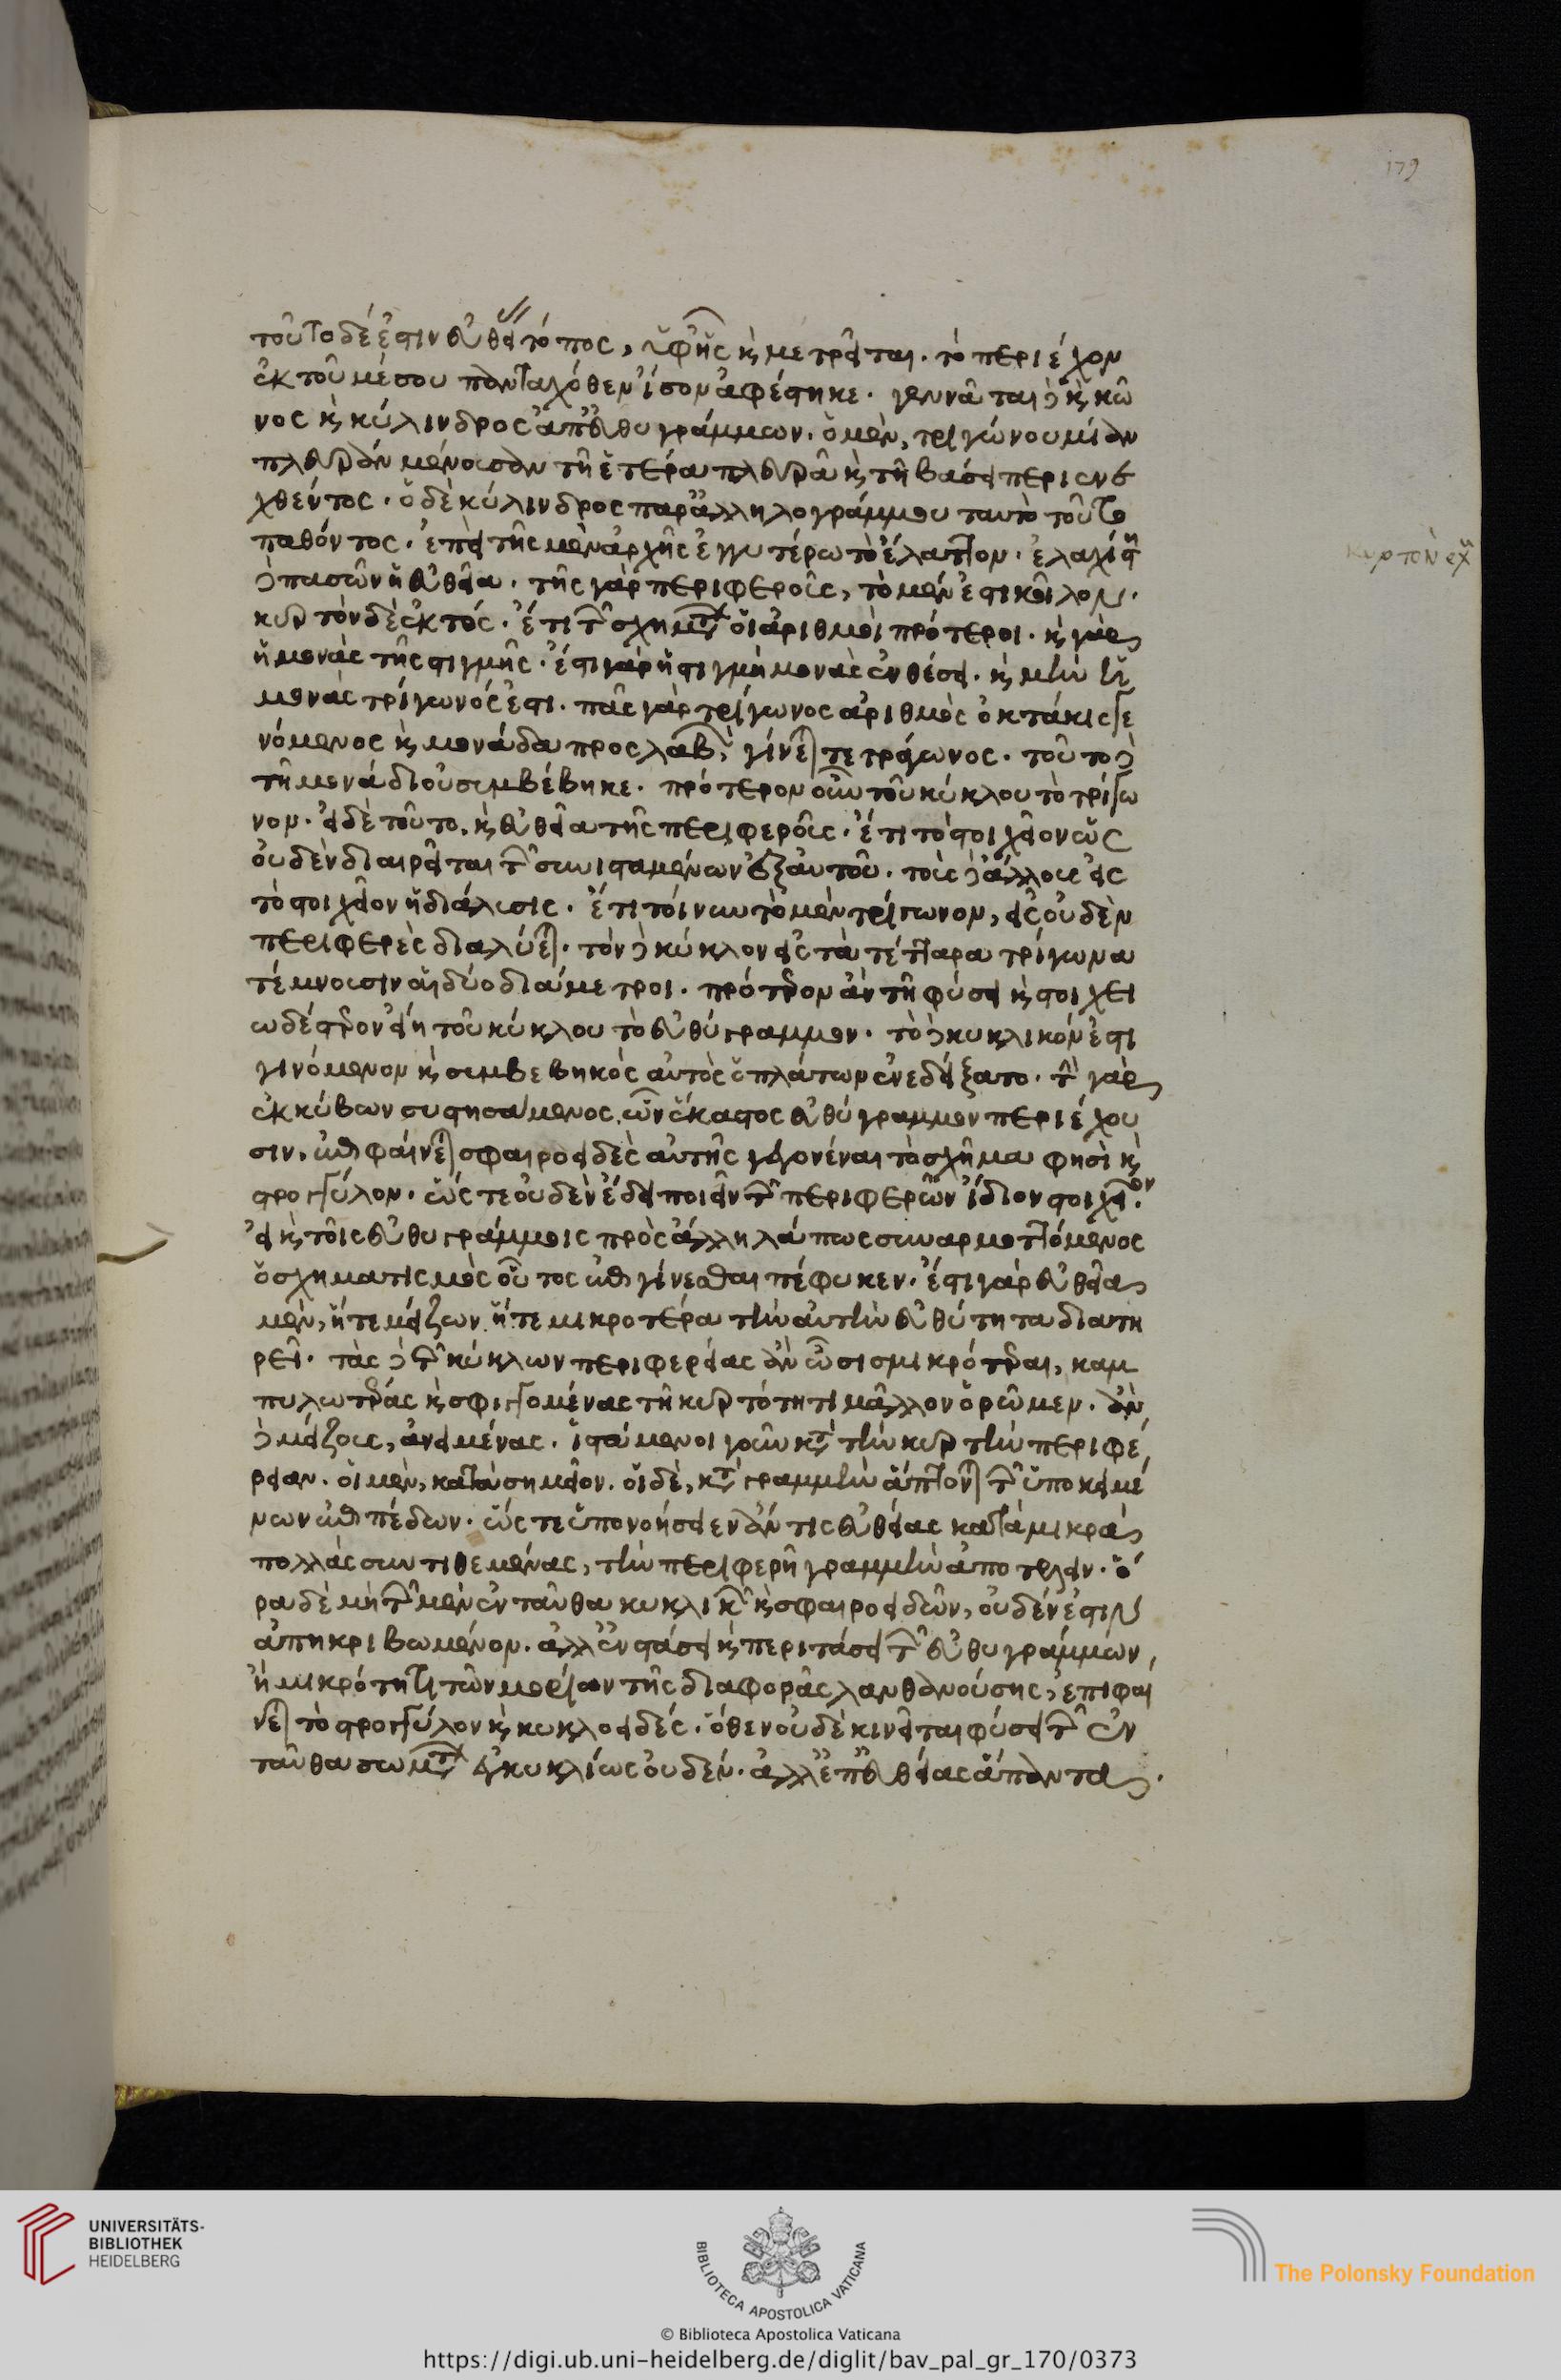 179
τοῦτο δέ ἐστιν εὐθεῖα τόπος, ὑφ' ἧς κὶ μετρεῖται. τὸ περιέχον
ἐκ τοῦ μέσου πανταχόθεν ἴσον ἀφέστηκε. γεννᾶται δὲ κὶ κῶ
νος κὶ κύλινδρος ἀπ' εὐθυγράμμων. ὁ μὲν, τριγώνου μίαν
πλευρὰν μένουσαν τῇ ἑτέρα πλευρᾶ κὶ τῇ βάσει περιενε
χθέντος. ὁ δὲ κύλινδρος παραλληλογράμμου ταυτὸ τοῦτο
παθόντος. ἐπεὶ τῆς μὲν ἀρχῆς ἐγγυτέρω τὸ ἔλαττον. ἐλαχίστη
δὲ πασῶν ἡ εὐθεῖα. τῆς γὰρ περιφεροῦς, τὸ μέν ἐστι κοῖλον.
κυρτὸν δὲ ἐκτός. ἔτι τῶν σχημάτων οἱ ἀριθμοὶ πρότεροι. κὶ γὰρ
ἡ μονὰς τῆς στιγμῆς. ἔστι γὰρ ἡ στιγμὴ μονὰς ἐν θέσει. κὶ μὴν ἡ
μονὰς τρίγωνός ἐστι. πᾶς γὰρ τρίγωνος ἀριθμὸς ὀκτάκις γε
νόμενος κὶ μονάδα προσλαβὼν, γίνεται τετράγωνος. τοῦτο δὲ
τῇ μονάδι οὐ συμβέβηκε. πρότερον οὖν τοῦ κύκλου τὸ τρίγω
νον. εἰ δὲ τοῦτο, κὶ εὐθεῖα τῆς περιφεροῦς. ἔτι τὸ στοιχεῖον ὡς
οὐδὲν διαιρεῖται τῶν συνισταμένων ἐξ αὐτοῦ. τοῖς δὲ ἄλλοις εἰς
τὸ στοιχεῖον ἡ διάλυσις. ἔτι τοίνυν τὸ μὲν τρίγωνον, εἰς οὐδὲν
περιφερὲς διαλύεται. τὸν δὲ κύκλον εἰς τὰ τέτταρα τρίγωνα
τέμνουσιν αἱ δύο διάμετροι. πρότερον ἂν τῇ φύσει κὶ στοιχει
ωδέστερον εἴη τοῦ κύκλου τὸ εὐθύγραμμον. τὸ δὲ κυκλικόν ἐστι
γινόμενον κὶ συμβεβηκὸς αὐτὸς ὁ πλάτων ἐνεδείξατο. τὴν γὰρ
ἐκ κύβων συστησάμενος, ὧν ἕκαστος εὐθύγραμμον περιέχου
σιν, ἐπιφαίνεται σφαιροειδὲς αὐτῆς γεγονέναι τὸ σχῆμα φησὶ κὶ
στρογγύλον. ὥς τε οὐδὲν ἔδει ποιεῖν τῶν περιφερῶν ἴδιον στοιχεῖον.
εἰ κὶ τοῖς εὐθυγράμμοις πρὸς ἄλληλά πως συναρμοττόμενος
ὁ σχηματισμὸς οὗτος ἐπιγίνεσθαι πέφυκεν. ἔστι γὰρ εὐθεῖα
μὲν, ἥ τε μείζων ἥ τε μικροτέρα τὴν αὐτὴν εὐθύτητα διατη
ρεῖ. τὰς δὲ τῶν κύκλων περιφερείας ἂν ὦσι σμικρότεραι, καμ
πυλωτέρας κὶ σφιγγομένας τῇ κυρτότητι μᾶλλον ὁρῶμεν. ἂν
δὲ μείζους, ἀνειμένας. ἱστάμενοι γοῦν κατὰ τὴν κυρτὴν περιφέ
ρειαν. οἱ μὲν, κατὰ σημεῖον. οἱ δὲ, κατὰ γραμμὴν ἅπτονται τῶν ὑποκειμέ
νων ἐπιπέδων. ὥς τε ὑπονοήσειεν ἄν τις εὐθείας κατὰ μικρὰς
πολλὰς συντιθεμένας, τὴν περιφερῆ γραμμὴν ἀποτελεῖν. ὅ
ρα δὲ μὴ τῶν μὲν ἐνταῦθα κυκλικῶν κὶ σφαιροειδῶν, οὐδέν ἐστιν
ἀπηκριβωμένον. ἀλλ' ἐν στάσει κὶ περιτάσει τῶν εὐθυγράμμων,
ἢ μικρότητι τῶν μορίων τῆς διαφορᾶς λανθανούσης, ἐπιφαί
νεται τὸ στρογγύλον κὶ κυκλοειδές. ὅθεν οὐδὲ κινεῖται φύσει τῶν ἐν
ταῦθα σωμάτων ἐγκυκλίως οὐδέν. ἀλλ' ἐπ' εὐθείας ἅπαντα.
κυρτὸν
UNIVERSITÄTS-
BIBLIOTHEK
HEIDELBERG
BIBLIOTECA APOSTOLICA VATICANA
The Polonsky Foundation
© Biblioteca Apostolica Vaticana
https://digi.ub.uni-heidelberg.de/diglit/bav_pal_gr_170/0373